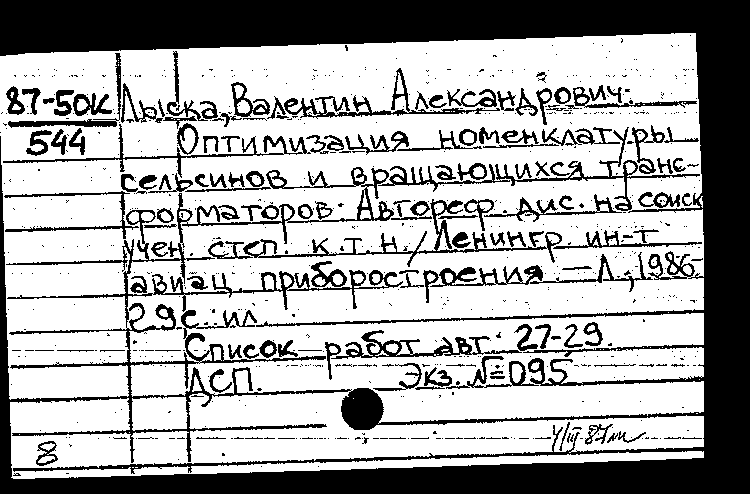 87-50К Лыска, Валентин Александрович.
544 Оптимизация номенклатуры
сельсинов и вращающихся транс-
форматоров: Автореф. дис. на соиск
учен. степ. к.т.н. / Ленингр. ин-т
авиац. приборостроения. — Л., 1986-
29с.: ил.
Список работ авт.: 27-29.
ДСП. Экз. №095
8